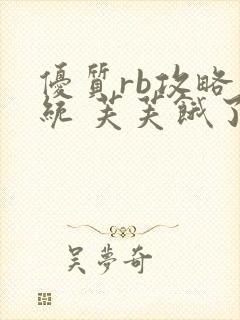 優質rb攻略
統 芙芙餓了
吳夢奇